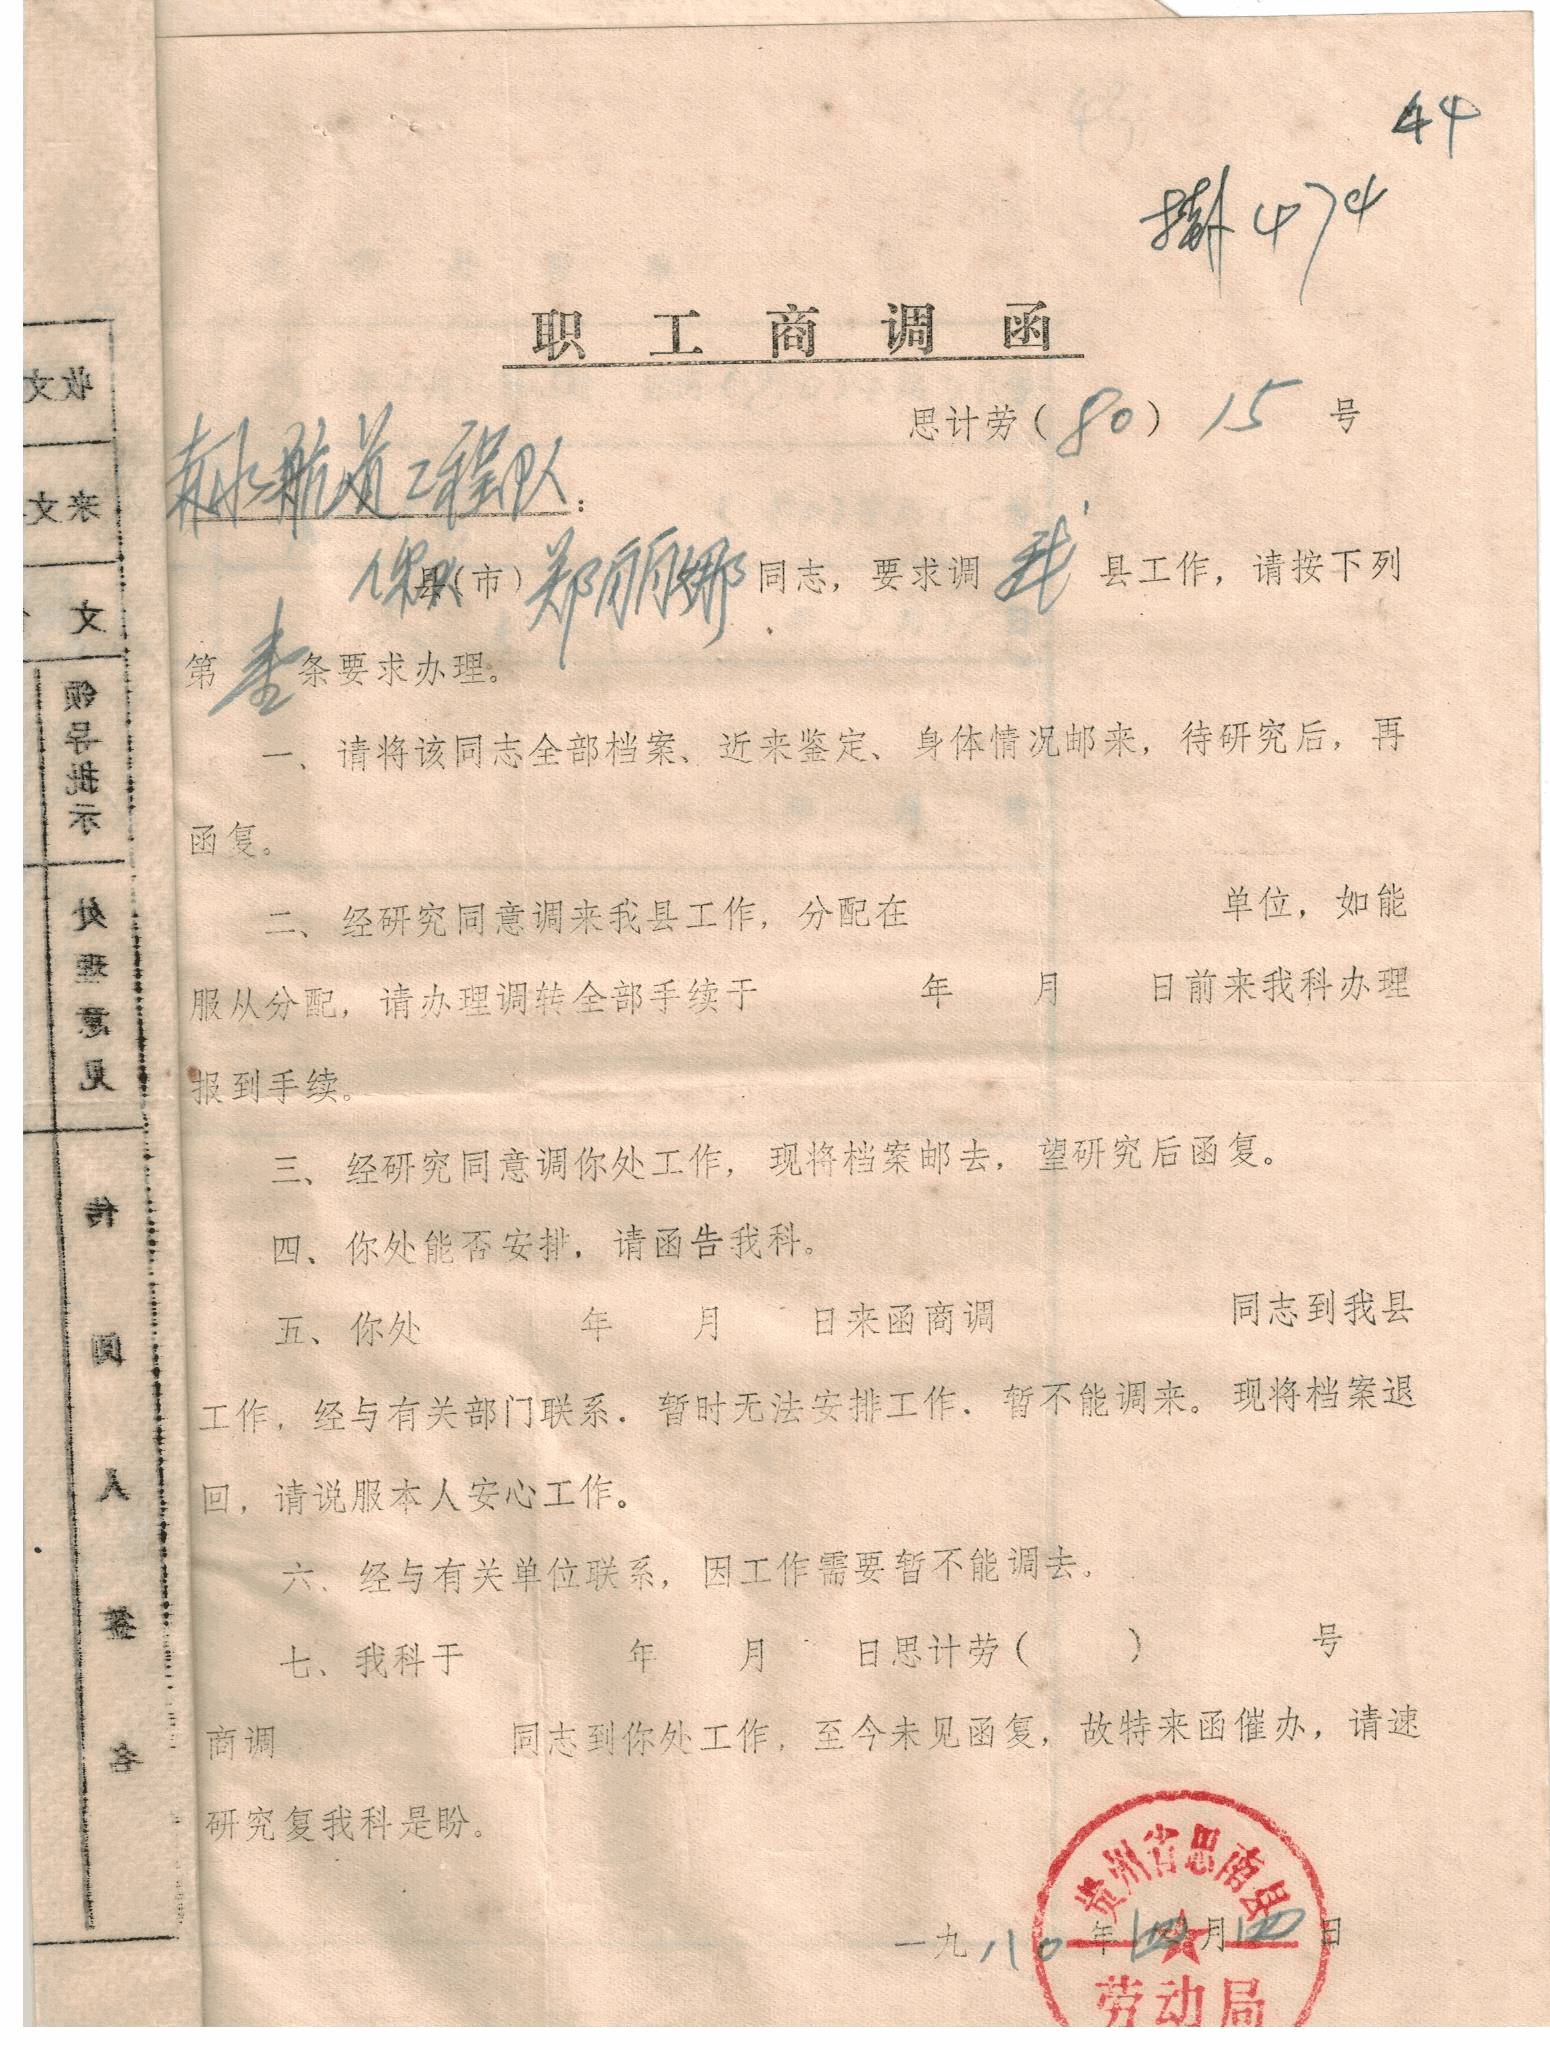 44
474
职工商调函
思计劳(80)15号
赤水航道工程队:
县(市)郑丽娜同志,要求调我县工作,请按下列
第壹条要求办理。
一、请将该同志全部档案、近来鉴定、身体情况邮来,待研究后,再
函复。
二、经研究同意调来我县工作,分配在 单位,如能
服从分配,请办理调转全部手续于 年 月 日前来我科办理
报到手续。
三、经研究同意调你处工作,现将档案邮去,望研究后函复。
四、你处能否安排,请函告我科。
五、你处 年 月 日来函商调 同志到我县
工作,经与有关部门联系.暂时无法安排工作.暂不能调来。现将档案退
回,请说服本人安心工作。
六.经与有关单位联系,因工作需要暂不能调去。
七、我科于 年 月 日思计劳( ) 号
商调 同志到你处工作,至今未见函复,故特来函催办,请速
研究复我科是盼。
一九八〇年四月四日
贵州省思南县
劳动局
收文
来文
文
领导批示
处理意见
传阅人签名